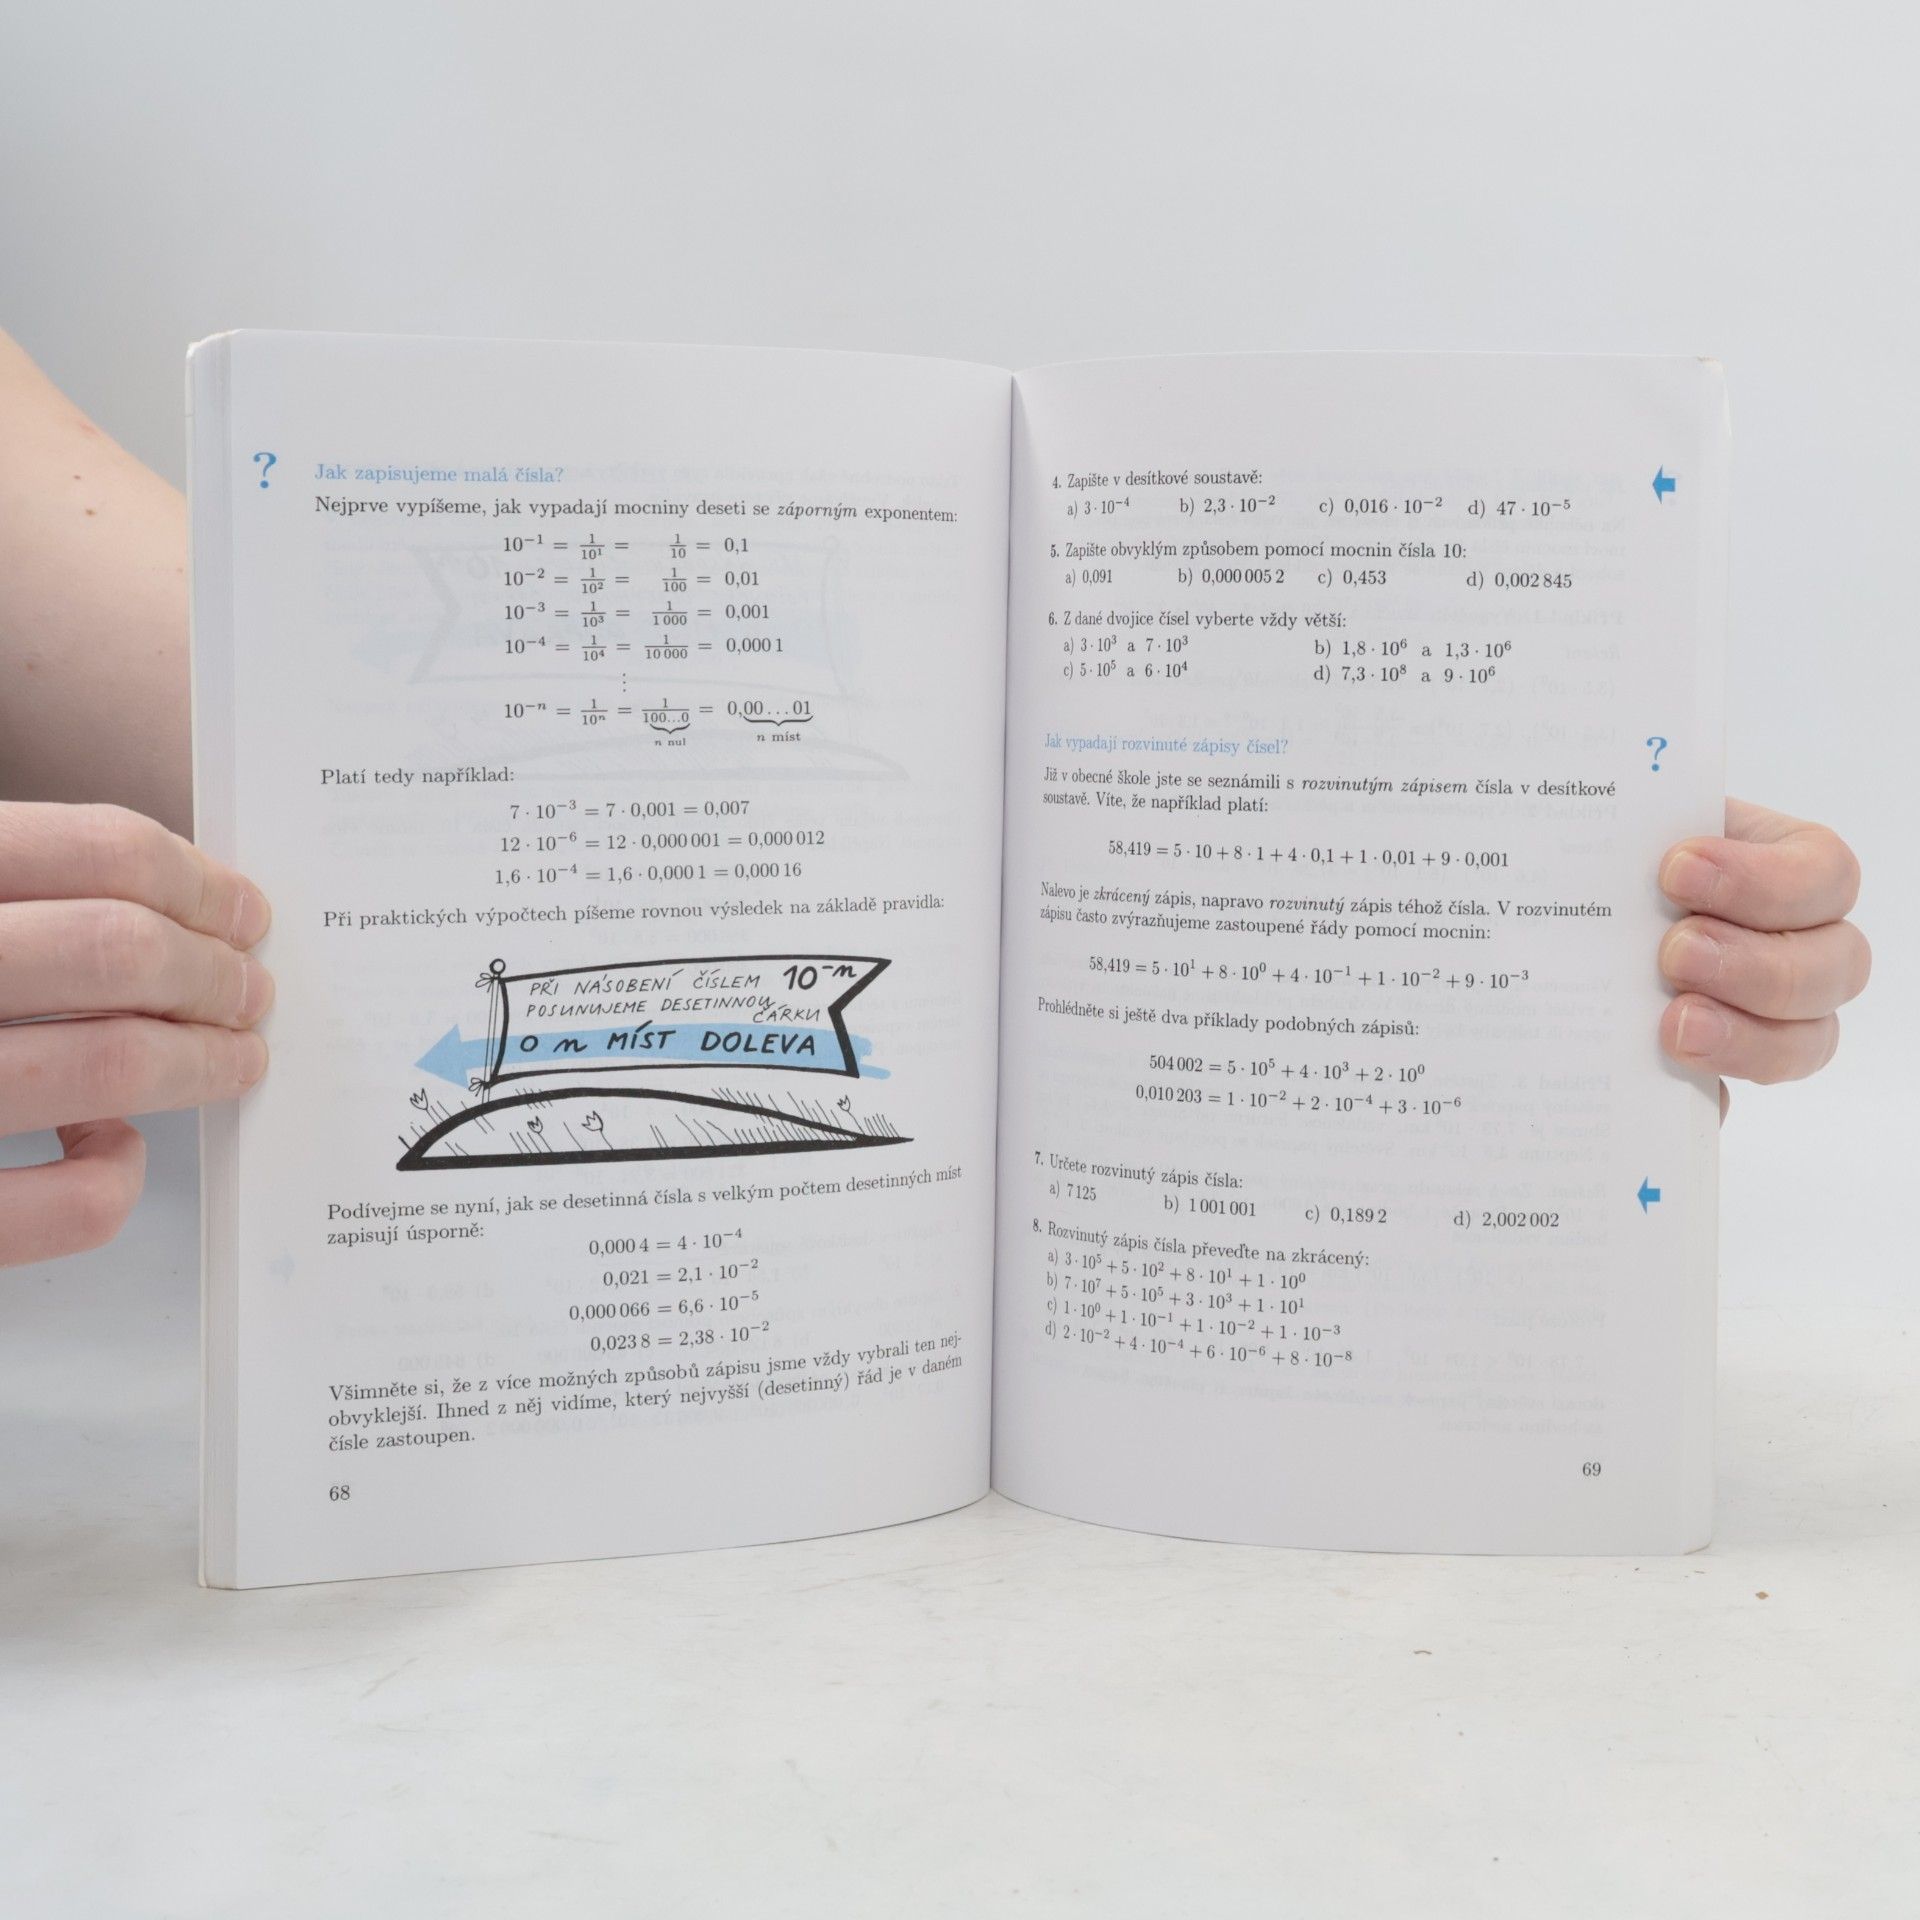 ?
Jak zapisujeme malá čísla?
Nejprve vypíšeme, jak vypadají mocniny deseti se záporným exponentem:
10⁻¹ = 1/10¹ = 1/10 = 0,1
10⁻² = 1/10² = 1/100 = 0,01
10⁻³ = 1/10³ = 1/1 000 = 0,001
10⁻⁴ = 1/10⁴ = 1/10 000 = 0,000 1
⋮
10⁻ⁿ = 1/10ⁿ = 1/100…0 = 0,00…01
n nul n míst
Platí tedy například:
7 · 10⁻³ = 7 · 0,001 = 0,007
12 · 10⁻⁶ = 12 · 0,000 001 = 0,000 012
1,6 · 10⁻⁴ = 1,6 · 0,000 1 = 0,000 16
Při praktických výpočtech píšeme rovnou výsledek na základě pravidla:
PŘI NÁSOBENÍ ČÍSLEM 10⁻ⁿ
POSUNUJEME DESETINNOU
ČÁRKU
O n MÍST DOLEVA
Podívejme se nyní, jak se desetinná čísla s velkým počtem desetinných míst
zapisují úsporně:
0,000 4 = 4 · 10⁻⁴
0,021 = 2,1 · 10⁻²
0,000 066 = 6,6 · 10⁻⁵
0,023 8 = 2,38 · 10⁻²
Všimněte si, že z více možných způsobů zápisu jsme vždy vybrali ten nej-
obvyklejší. Ihned z něj vidíme, který nejvyšší (desetinný) řád je v daném
čísle zastoupen.
68
4. Zapište v desítkové soustavě:
a) 3 · 10⁻⁴ b) 2,3 · 10⁻² c) 0,016 · 10⁻² d) 47 · 10⁻⁵
5. Zapište obvyklým způsobem pomocí mocnin čísla 10:
a) 0,091 b) 0,000 005 2 c) 0,453 d) 0,002 845
6. Z dané dvojice čísel vyberte vždy větší:
a) 3 · 10³ a 7 · 10³ b) 1,8 · 10⁶ a 1,3 · 10⁶
c) 5 · 10⁵ a 6 · 10⁴ d) 7,3 · 10⁸ a 9 · 10⁶
Jak vypadají rozvinuté zápisy čísel?
?
Již v obecné škole jste se seznámili s rozvinutým zápisem čísla v desítkové
soustavě. Víte, že například platí:
58,419 = 5 · 10 + 8 · 1 + 4 · 0,1 + 1 · 0,01 + 9 · 0,001
Nalevo je zkrácený zápis, napravo rozvinutý zápis téhož čísla. V rozvinutém
zápisu často zvýrazňujeme zastoupené řády pomocí mocnin:
58,419 = 5 · 10¹ + 8 · 10⁰ + 4 · 10⁻¹ + 1 · 10⁻² + 9 · 10⁻³
Prohlédněte si ještě dva příklady podobných zápisů:
504 002 = 5 · 10⁵ + 4 · 10³ + 2 · 10⁰
0,010 203 = 1 · 10⁻² + 2 · 10⁻⁴ + 3 · 10⁻⁶
7. Určete rozvinutý zápis čísla:
a) 7 125 b) 1 001 001 c) 0,189 2 d) 2,002 002
8. Rozvinutý zápis čísla převeďte na zkrácený:
a) 3 · 10⁵ + 5 · 10² + 8 · 10¹ + 1 · 10⁰
b) 7 · 10⁷ + 5 · 10⁵ + 3 · 10³ + 1 · 10¹
c) 1 · 10⁰ + 1 · 10⁻¹ + 1 · 10⁻² + 1 · 10⁻³
d) 2 · 10⁻² + 4 · 10⁻⁴ + 6 · 10⁻⁶ + 8 · 10⁻⁸
69